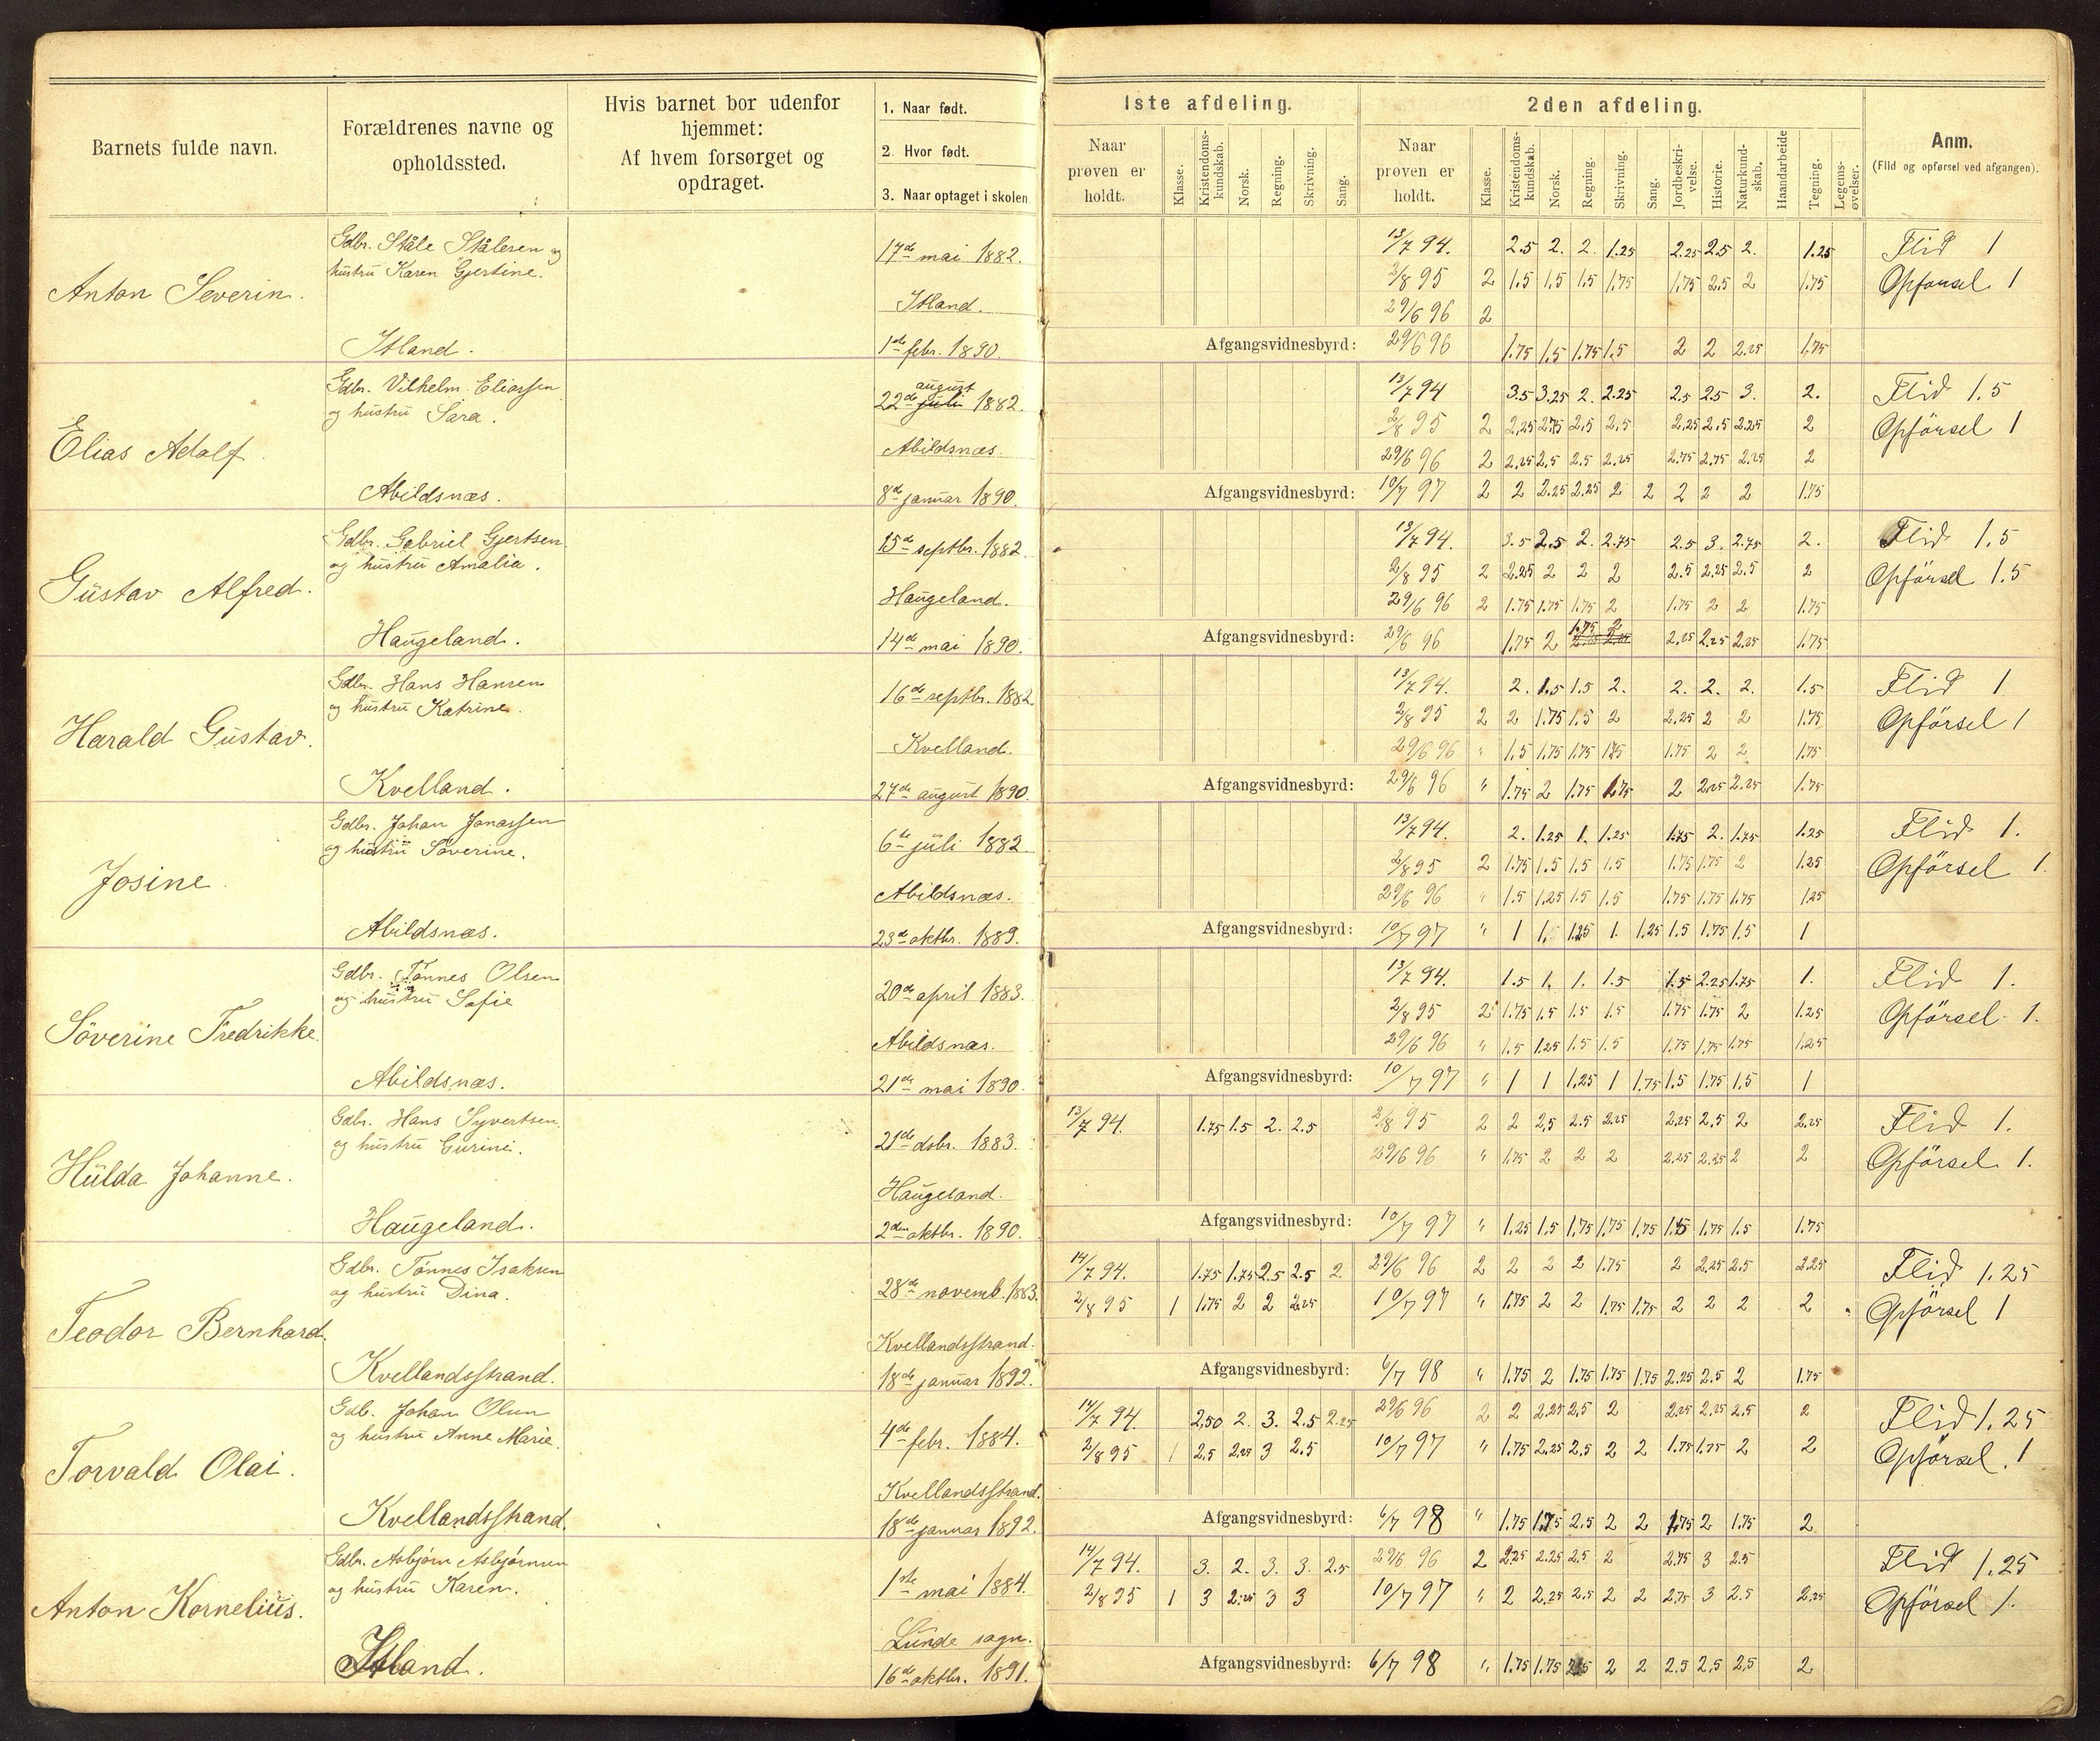 Barnets fulde navn.
Forældrenes navne og
opholdssted.
Hvis barnet bor udenfor
hjemmet:
Af hvem forsørget og
opdraget.
1. Naar født.
2. Hvor født.
3. Naar optaget i skolen
1ste afdeling.
2den afdeling.
Naar
prøven er
holdt.
Klasse.
Kristendoms-
kundskab.
Norsk.
Regning.
Skrivning.
Sang.
Naar
prøven er
holdt.
Klasse.
Kristendoms-
kundskab.
Norsk.
Regning.
Skrivning.
Sang.
Jordbeskri-
velse.
Historie.
Naturkund-
skab.
Haandarbeide
Tegning.
Legems-
øvelser.
Anm.
(Flid og opførsel ved afgangen).
Anton Severin.
Gdbr. Ståle Stålesen og
hustru Karen Gjertine.
Itland.
17de mai 1882.
Itland.
1ste febr. 1890.
13/7 94. 2.5 2. 2. 1.25 2.25 2.5 2. 1.25 Flid 1
2/8 95 2 1.5 1.5 1.5 1.75 1.75 2.5 2 1.75 Opförsel 1
29/6 96 2
Afgangsvidnesbyrd: 29/6 96 1.75 1.5 1.75 1.5 2 2 2.25 1.75
Elias Adolf.
Gdbr. Vilhelm Eliassen
og hustru Sara.
Abildsnæs.
august
22de juli 1882.
Abildsnæs.
8de januar 1890.
13/7 94 3.5 3.25 2. 2.25 2.5 2.5 3. 2. Flid 1.5
2/8 95 2 2.25 2.75 2.5 2.5 2.25 2.5 2.25 2 Opförsel 1
29/6 96 2 2.25 2.5 2.5 2.25 2.75 2.75 2.25 2
Afgangsvidnesbyrd: 10/7 97 2 2 2.25 2.25 2 2 2 2 2 1.75
Gustav Alfred.
Gdbr. Gabriel Gjertsen
og hustru Amalia.
Haugeland.
15de septbr. 1882.
Haugeland.
14de mai 1890.
13/7 94. 3.5 2.5 2. 2.75 2.5 3. 2.75 2. Flid 1.5
2/8 95 2 2.25 2 2 2 2.5 2.25 2.5 2 Opförsel 1.5
29/6 96 2 1.75 1.75 1.75 2 1.75 2 2 1.75
1.75 2
Afgangsvidnesbyrd: 29/6 96 1.75 2 2.25 2.25 2.25 2.25 1.75
Harald Gustav.
Gdbr. Hans Hansen
og hustru Katrine.
Kvelland.
16de septbr. 1882.
Kvelland.
27de august 1890.
13/7 94. 2. 1.5 1.5 2. 2. 2. 2. 1.5 Flid 1
2/8 95 2 2 1.75 1.5 2 2.25 2 2 1.75 Opförsel 1
29/6 96 " 1.5 1.75 1.75 1.75 1.75 2 2 1.75
Afgangsvidnesbyrd: 29/6 96 " 1.75 2 1.75 1.75 2 2.25 2.25 1.75
Josine.
Gdbr. Johan Jonassen
og hustru Söverine.
Abildsnæs.
6te juli 1882.
Abildsnæs.
23de oktbr. 1889.
13/7 94. 2. 1.25 1. 1.25 1.75 2. 1.75 1.25 Flid 1.
2/8 95 2 1.75 1.5 1.5 1.5 1.75 1.75 2 1.25 Opförsel 1.
29/6 96 " 1.5 1.25 1.5 1.5 1.75 1.75 1.75 1.25
Afgangsvidnesbyrd: 10/7 97 " 1 1. 1.25 1. 1.25 1.5 1.75 1.5 1
Söverine Fredrikke.
Gdbr. Tönnes Olsen
og hustru Sofie
Abildsnæs.
20de april 1883.
Abildsnæs.
21de mai 1890.
13/7 94. 1.5 1. 1. 1.5 1.5 2.25 1.75 1. Flid 1.
2/8 95 2 1.75 1.5 1.5 1.5 1.75 1.75 2 1.25 Opförsel 1.
29/6 96 " 1.5 1.25 1.5 1.5 1.75 1.75 1.75 1.25
Afgangsvidnesbyrd: 10/7 97 " 1 1 1.25 1 1.75 1.5 1.75 1.5 1
Hulda Johanne.
Gdbr. Hans Syvertsen
og hustru Gurine.
Haugeland.
21de dsbr. 1883.
Haugeland.
2den oktbr. 1890.
13/7 94. 1.75 1.5 2. 2.5 2/8 95 2 2 2.5 2.5 2.25 2.25 2.5 2 2.25 Flid 1.
29/6 96 " 1.75 2 2 2 2.25 2.25 2 2 Opförsel 1.
Afgangsvidnesbyrd: 10/7 97 " 1.25 1.5 1.75 1.75 1.75 1.5 1.75 1.5 1.75
Teodor Bernhard.
Gdbr. Tönnes Isaksen
og hustru Dina.
Kvellandsstrand.
28de novemb. 1883.
Kvellandsstrand.
18de januar 1892.
14/7 94. 1.75 1.75 2.5 2.5 2. 29/6 96 2 2 2 2 1.75 2 2.25 2.5 2.25 Flid 1.25
2/8 95 1 1.75 2 2 2.25 10/7 97 " 1.75 2 2 1.75 1.75 2 2 2 2 Opförsel 1
Afgangsvidnesbyrd: 6/7 98 " 1.75 2 1.75 1.75 1.75 2.25 2.5 2 1.75
Torvald Olai.
Gdb. Johan Olsen
og hustru Anne Marie.
Kvellandsstrand.
4de febr. 1884.
Kvellandsstrand.
18de januar 1892.
14/7 94. 2.50 2. 3. 2.5 2.25 29/6 96 2 2 2.25 2.5 2 2.25 2.25 2.5 2 Flid 1.25
2/8 95 1 2.5 2.25 3 2.5 10/7 97 " 1.75 2.25 2.5 2 2 1.75 1.75 2 2 Opförsel. 1
Afgangsvidnesbyrd: 6/7 98 " 1.75 1.75 2.5 2 2 1.75 2 1.75 2
Anton Kornelius.
Gdbr. Asbjörn Asbjörnsen
og hustru Karen.
Itland.
1ste mai 1884.
Lunde sogn.
16de oktbr. 1891.
14/7 94. 3. 2. 3. 3. 2.5 29/6 96 2 2.25 2.25 2.5 2 2.75 3 2.5 Flid 1.25
2/8 95 1 3 2.25 3 3 10/7 97 " 2 2.25 2.5 2 2 2.75 3 2.5 2.25 Opförsel 1.
Afgangsvidnesbyrd: 6/7 98 " 1.75 1.75 2 2 2.5 2.5 2.5 2